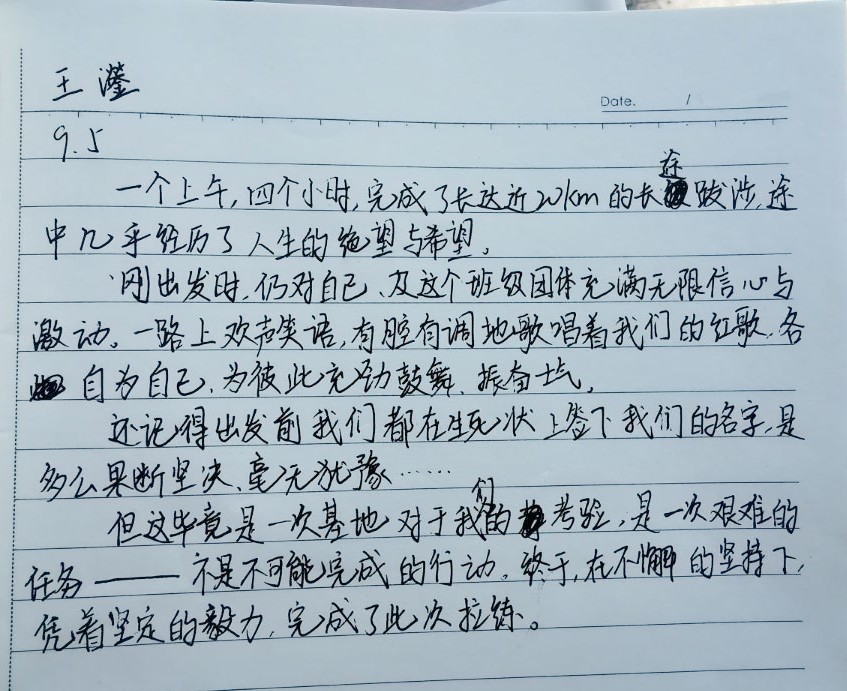 王瀅
Date. /
9.5
一个上午,四个小时,完成了长达近20km的长途跋涉,途
中几乎经历了人生的绝望与希望。
刚出发时,仍对自己、及这个班级团体充满无限信心与
激动。一路上欢声笑语,有腔有调地歌唱着我们的红歌,各
自为自己、为彼此充劲鼓舞、振奋士气。
还记得出发前我们都在生死状上签下我们的名字,是
多么果断坚决、毫无犹豫……
但这毕竟是一次基地对于我们的考验,是一次艰难的
任务——不是不可能完成的行动。终于,在不懈的坚持下,
凭着坚定的毅力,完成了此次拉练。